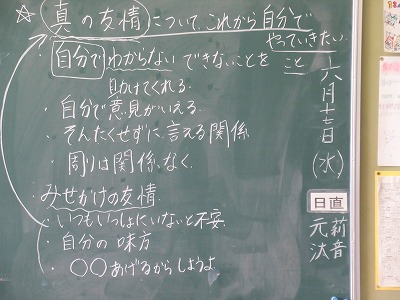 ☆ 真の友情について、これから自分で
やっていきたい
こと
・自分でわからない できないことを
助けてくれる.
・自分で意見がいえる.
・そんたくせずに、言える関係
・周りは関係なく.
・みせかけの友情.
・いつもいっしょにいないと不安.
・自分の味方
・○○あげるからしようよ
六月十二日(水)
日直
莉音
元汰